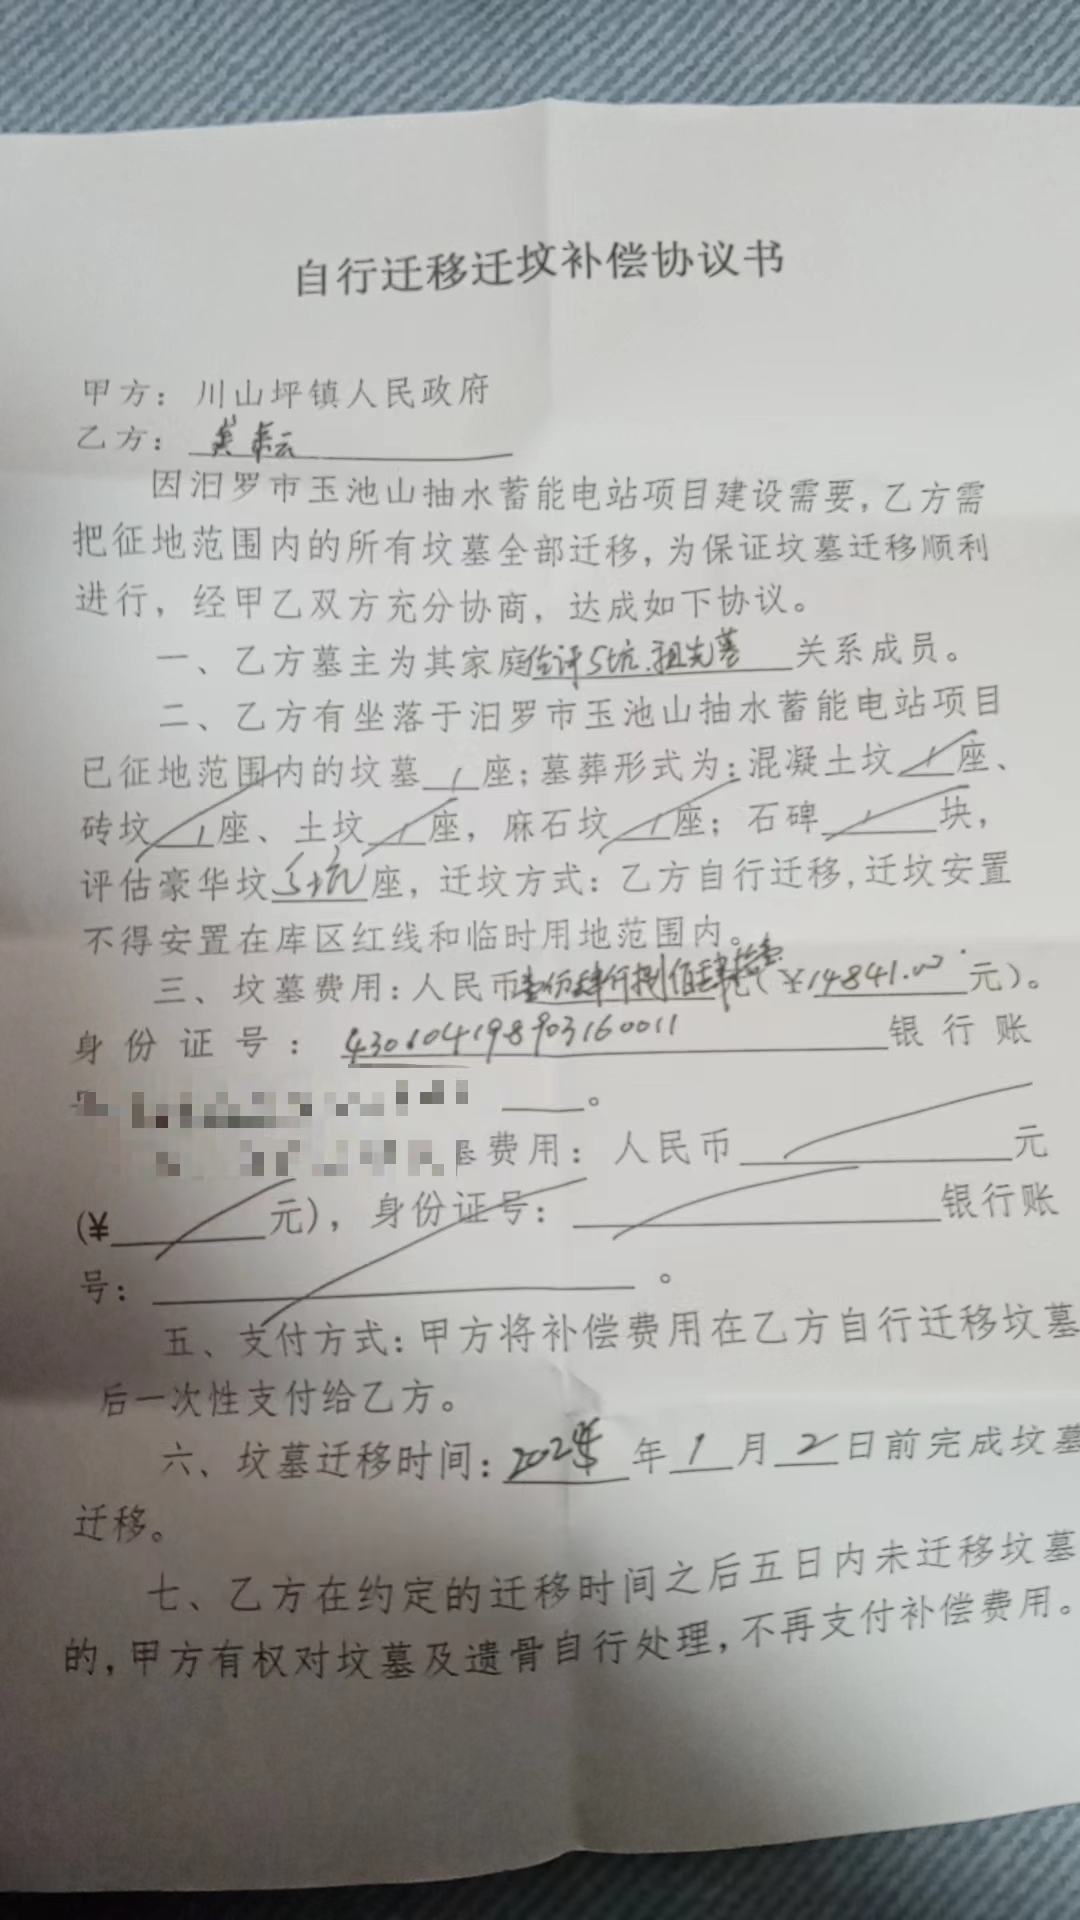 自行迁移迁坟补偿协议书
甲方：川山坪镇人民政府
乙方：
因汨罗市玉池山抽水蓄能电站项目建设需要，乙方需
把征地范围内的所有坟墓全部迁移，为保证坟墓迁移顺利
进行，经甲乙双方充分协商，达成如下协议。
一、乙方墓主为其家庭估评5坑.祖先墓关系成员。
二、乙方有坐落于汨罗市玉池山抽水蓄能电站项目
已征地范围内的坟墓1座；墓葬形式为：混凝土坟1座、
砖坟1座、土坟1座，麻石坟1座；石碑1块，
评估豪华坟5坑座，迁坟方式：乙方自行迁移，迁坟安置
不得安置在库区红线和临时用地范围内。
三、坟墓费用：人民币元（¥14841.00元）。
身份证号：430104198903160011银行账
。
费用：人民币元
(¥元)，身份证号：银行账
号：。
五、支付方式：甲方将补偿费用在乙方自行迁移坟墓
后一次性支付给乙方。
六、坟墓迁移时间：年1月2日前完成坟墓
迁移。
七、乙方在约定的迁移时间之后五日内未迁移坟墓
的，甲方有权对坟墓及遗骨自行处理，不再支付补偿费用。